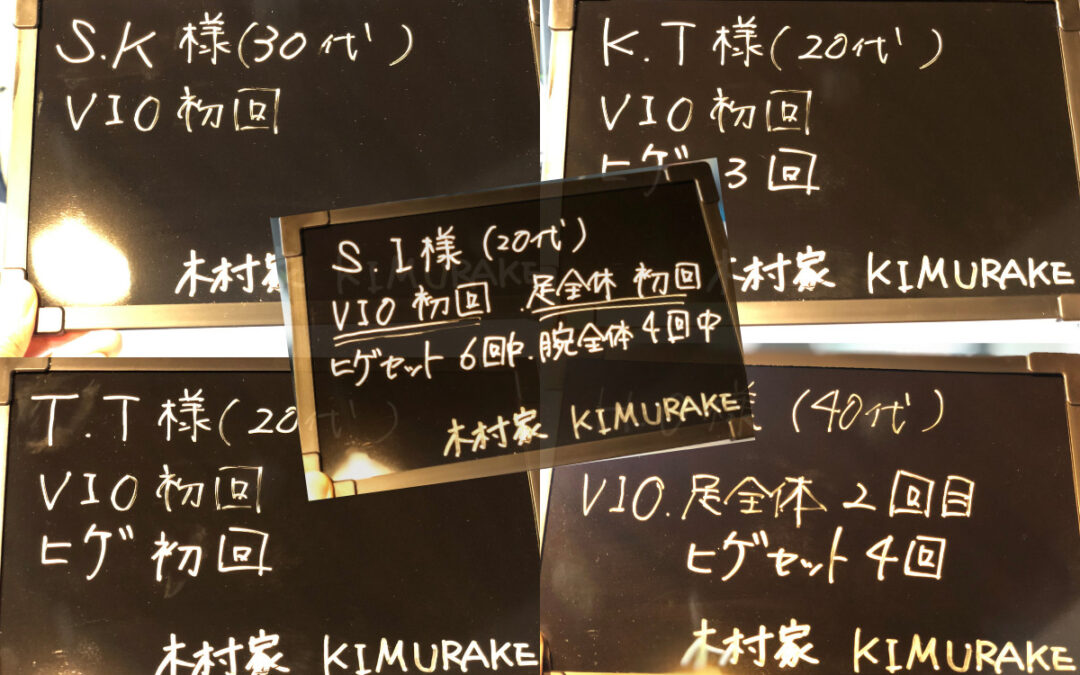 S.K様(30代)
VIO 初回
木村家 KIMURAKE
K.T様(20代)
VIO 初回
ヒゲ 3回
木村家 KIMURAKE
S.I様(20代)
VIO 初回 . 足全体 初回
ヒゲセット 6回中.腕全体 4回中
木村家 KIMURAKE
T.T様(20代)
VIO 初回
ヒゲ 初回
木村家 KIMURAKE
様(40代)
VIO.足全体 2回目
ヒゲセット 4回
木村家 KIMURAKE